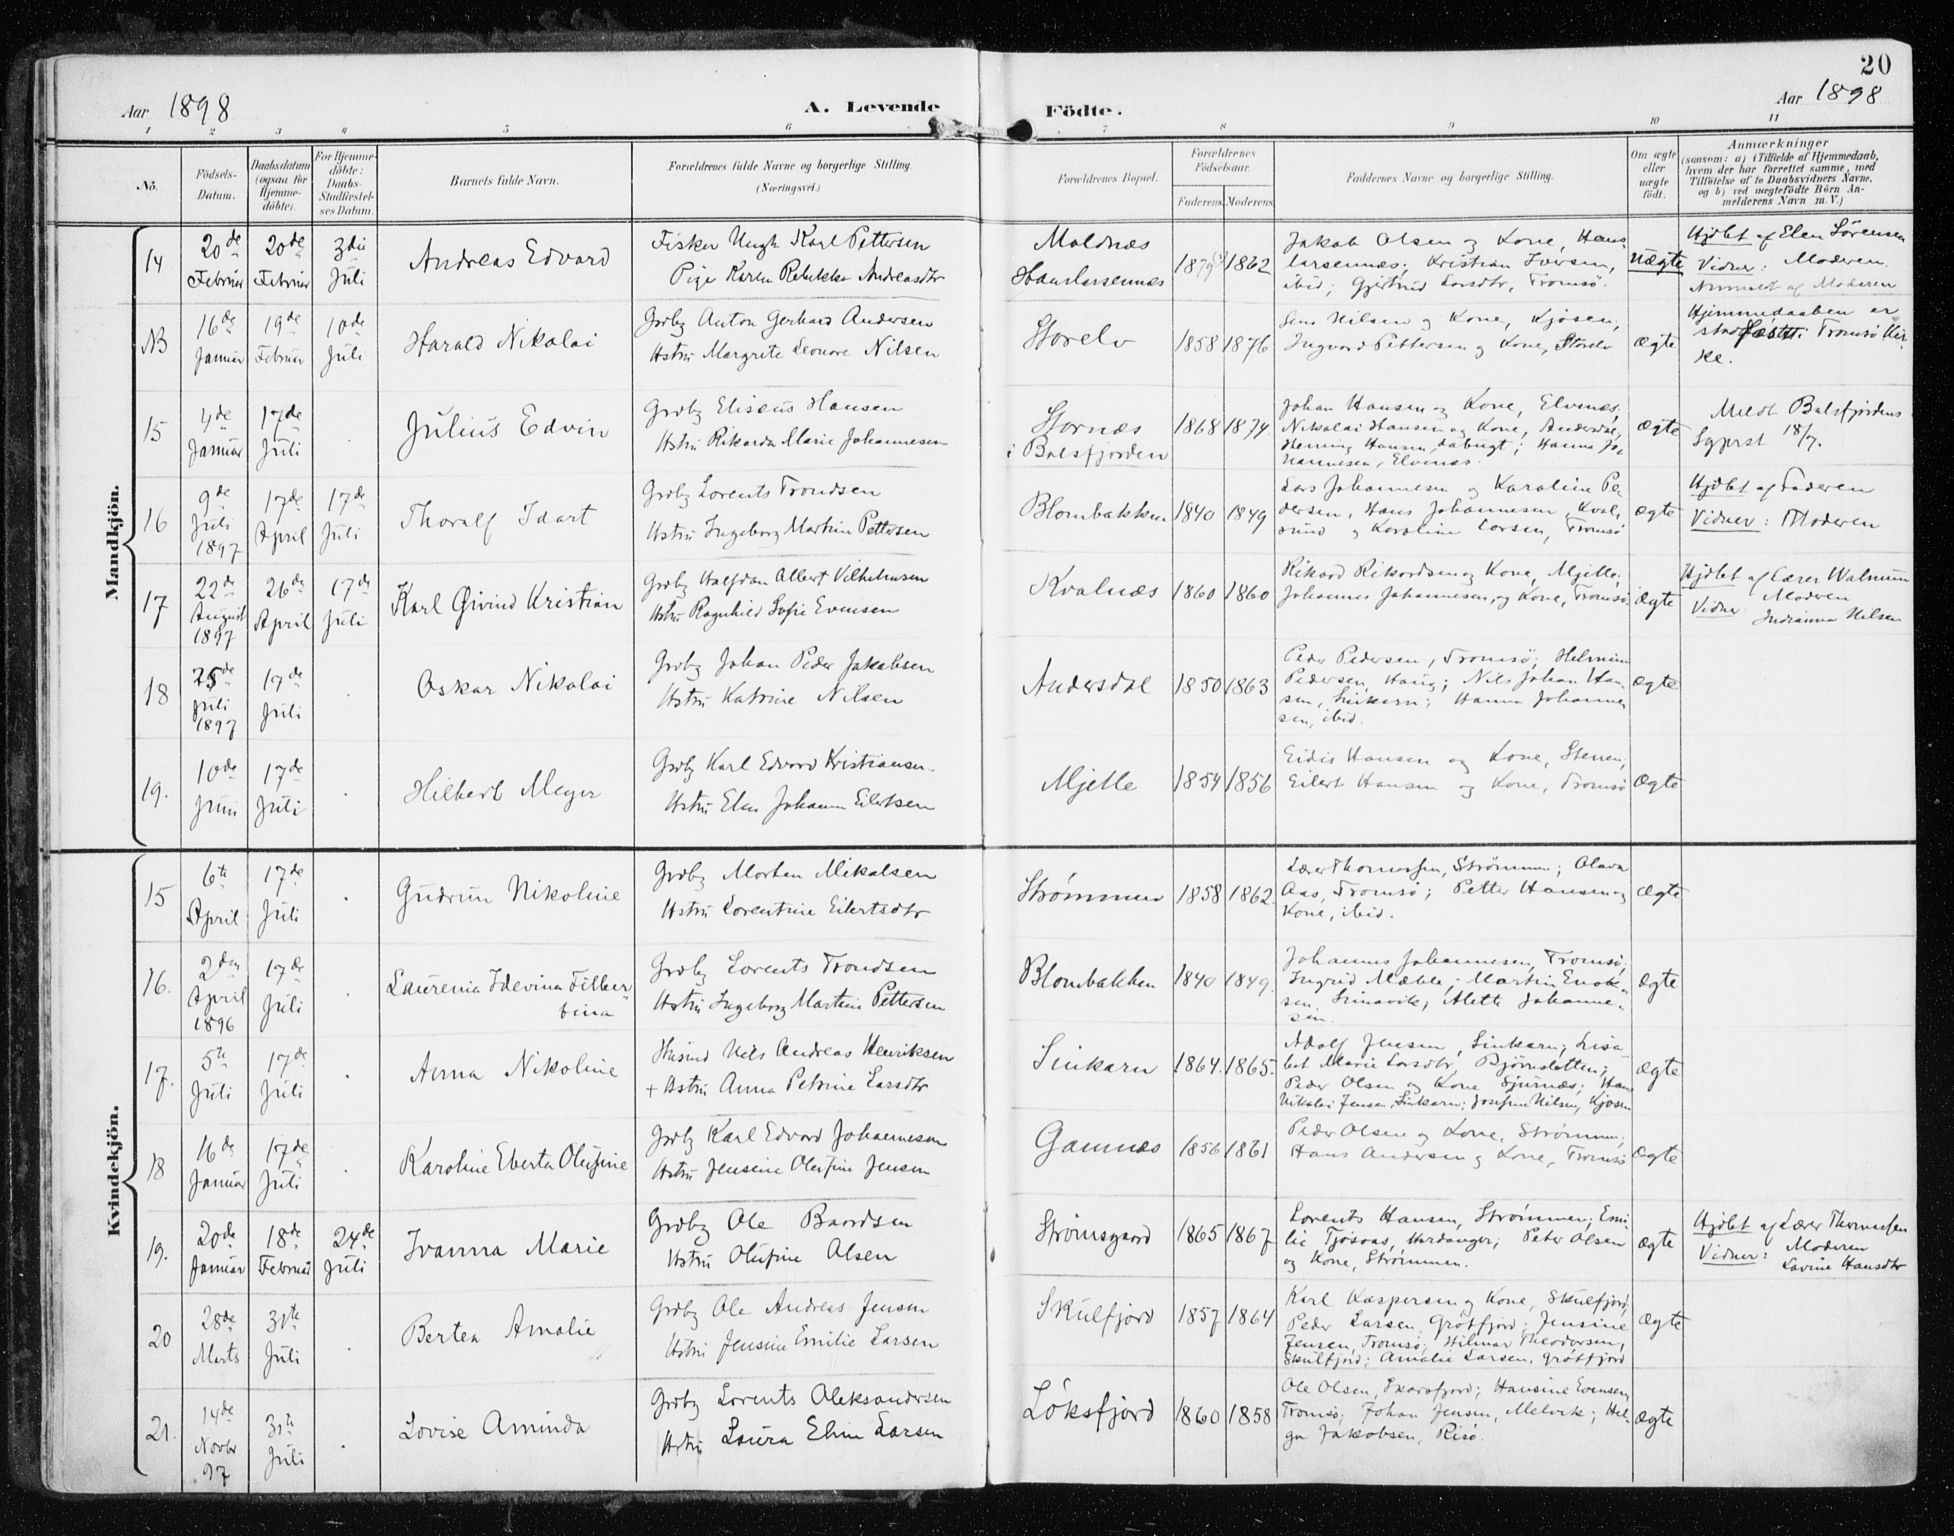 20
Aar 1898
A. Levende Födte.
Aar 1898
1 2 3 4 5 6 7 8 9 10 11
No.
Födsels-Datum.
Daabsdatum (ogsaa for Hjemmedöbte).
For Hjemmedöbte: Daabs-Stadfæstelses Datum.
Barnets fulde Navn.
Forældrenes fulde Navne og borgerlige Stilling. (Næringsvei.)
Forældrenes Bopæl.
Forældrenes Födselsaar.
Faderens Moderens
Faddernes Navne og borgerlige Stilling.
Om ægte eller uægte födt.
Anmærkninger
(saasom: a) i Tilfælde af Hjemmedaab,
hvem der har forrettet samme, med
Tilföielse af to Daabsvidners Navne,
og b) ved uegtefödte Börn Anmelderens Navn m. V.)
Mandkjön.
14
20de Februar
20de Februar
3die Juli
Andreas Edvard
Fisker Ungk Karl Pettersen
Pige Karen Rebekka Andreasdtr
Maldnæs
Hanslarsennæs
1879 1862
Jakob Olsen og Kone, Hans-
larsennæs; Kristian Iversen,
ibid; Gjertrud Larsdtr, Tromsø.
uægte
Hjdbt af Elen Sörensen
Vidner: Moderen.
Anmeldt af Moderen
NB
16de Januar
19de Februar
10de Juli
Harald Nikolai
Grdbg Anton Gerhard Andersen
Hstru Margrete Leonore Nilsen
Storelv
1858 1876
Lens Nilsen og Kone, Kjosen,
Ingvard Pettersen og Kone, Storelv
ægte
Hjemmedaaben er
stadfæstet i Tromsø Kir-
ke.
15
4de Januar
17de Juli
Julius Edvin
Grdbg Eliseus Hansen
Hstru Rikarda Marie Johannesen
Stornæs
i Balsfjorden
1868 1874.
Johan Hansen og Kone, Elvenæs,
Nikolai Hansen og Kone, Andersdal,
Henning Hansen, Låbugt; Hanna Jo-
hannesen, Elvenæs.
ægte
Meldt Balsfjordens
Sgprst 18/7.
16
9de Juli 1897
17de April
17de Juli
Thoralf Idart
Grdbg Lorents Trondsen
Hstru Ingeborg Martine Pettersen
Blombakken
1840 1849
Lars Johannesen og Karoline Pe-
dersen, Hans Johannesen, Kval-
sund og Karoline Larsen, Tromsø
ægte
Hjdbt af Faderen
Vidner: Moderen
17
22de August 1897
26de April
17de Juli
Karl Øivind Kristian
Grdbg Halfdan Albert Vilhelmsen
Hstru Ragnhild Sofie Evensen
Kvalnæs
1860 1860
Rikard Rikardsen og Kone, Mjelle;
Johannes Johannesen, og Kone, Tromsø
ægte
Hjdbt af Lærer Walmun
Vidner: Moderen
Indianna Nilsen
18
25de Juli 1897
17de Juli
Oskar Nikolai
Grdbg Johan Peder Jakobsen
Hstru Katrine Nilsen
Andersdal
1850 1863
Peder Pedersen, Tromsø; Helmine
Pedersen, Haug; Nils Johan Han-
sen, Sinkarn; Hanna Johanne-
sen, ibid.
ægte
19.
10de Juni
17de Juli
Hilbert Meyer
Grdbg Karl Edvard Kristiansen.
Hstru Elen Johanna Eilertsen
Mjelle
1854 1856
Eidis Hansen og Kone, Stenen;
Eilert Hansen og Kone, Tromsø
ægte
Kvindekjön.
15
6te April
17de Juli
Gudrun Nikoline
Grdbg Morten Mikalsen
Hstru Lorentine Eilertsdtr
Strømmen
1858 1862.
Lær Thomassen, Strømmen; Olava
Aas, Tromsø; Petter Hansen og
Kone, ibid.
ægte
16.
2den April 1896
17de Juli
Laurenia Idevina Filber-
tina
Grdbg Lorents Trondsen
Hstru Ingeborg Martine Pettersen
Blombakken
1840 1849.
Johannes Johannesen, Tromsø,
Ingrid Mæhle; Martin Enok-
sen, Simavik; Alette Johanne-
sen.
ægte
17.
5te Juli
17de Juli
Anna Nikoline
Husmd Nils Andreas Henriksen
+ Hstru Anna Petrine Larsdtr
Sinkarn
1864. 1865.
Adolf Jensen, Sinkarn; Lisa-
bet Marie Larsdtr, Bjørnsletten;
Peder Olsen og Kone Sjurnæs; Hans
Nikolai Jensen, Sinkarn; Josefine Nilsen, Kjosen
ægte
18
16de Januar
17de Juli
Karoline Eberta Olufine
Grdbg Karl Edvard Johannesen
Hstru Jensine Olufine Jensen
Gamnæs
1856 1861
Peder Olsen og Kone, Strømmen;
Hans Andersen og Kone, Tromsø
ægte
19.
20de Januar
18de Februar
24de Juli
Ivanna Marie
Grdbg Ole Baardsen
Hstru Olufine Olsen
Strømsgaard
1865 1867
Lorents Hansen, Strømmen; Emi-
lie Tjosaas, Hardanger; Peter Olsen
og Kone, Strømmen.
ægte
Hjdbt af Lærer Thomassen
Vidner: Moderen
Lovine Hansdtr
20
28de Marts
31te Juli
Bertea Amalie
Grdbg Ole Andreas Jensen
Hstru Jensine Emilie Larsen
Skulfjord
1857 1864
Karl Kaspersen og Kone, Skulfjord,
Peder Larsen, Grötfjord; Jensine
Jensen, Tromsø; Hilmar Theodorsen,
Skulfjord; Amalie Larsen, Grötfjord
ægte
21.
14de Novbr 97
31te Juli
Lovise Aminda
Grdbg Lorents Aleksandersen
Hstru Laura Eline Larsen
Løksfjord
1860 1858
Ole Olsen, Skarsfjord; Hansine Evensen,
Tromsø; Johan Jensen, Melvik; Hel-
ga Jakobsen, Risø.
ægte